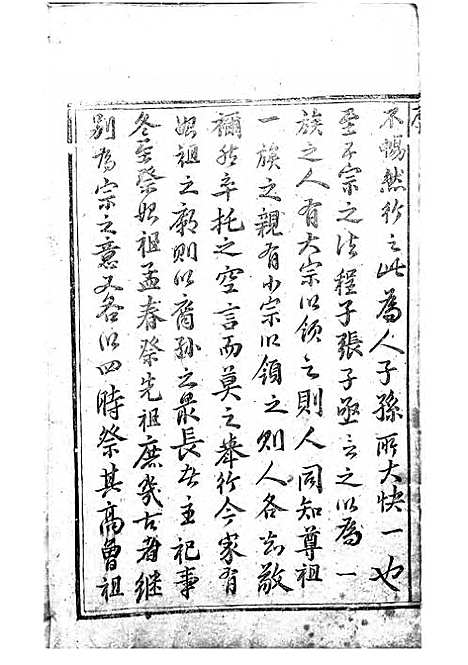 不暢然行之此為人子孫所大快一也
至于宗之法程子張子亟言之以為一
族之人有大宗以領之則人同知尊祖
一族之親有小宗以領之則人各知敬
禰然卒托之空言而莫之舉行今家有
始祖之廟則以裔孫之最長者主祀事
冬至祭始祖孟春祭先祖庶幾古者繼
別為宗之意又各以四時祭其高曾祖